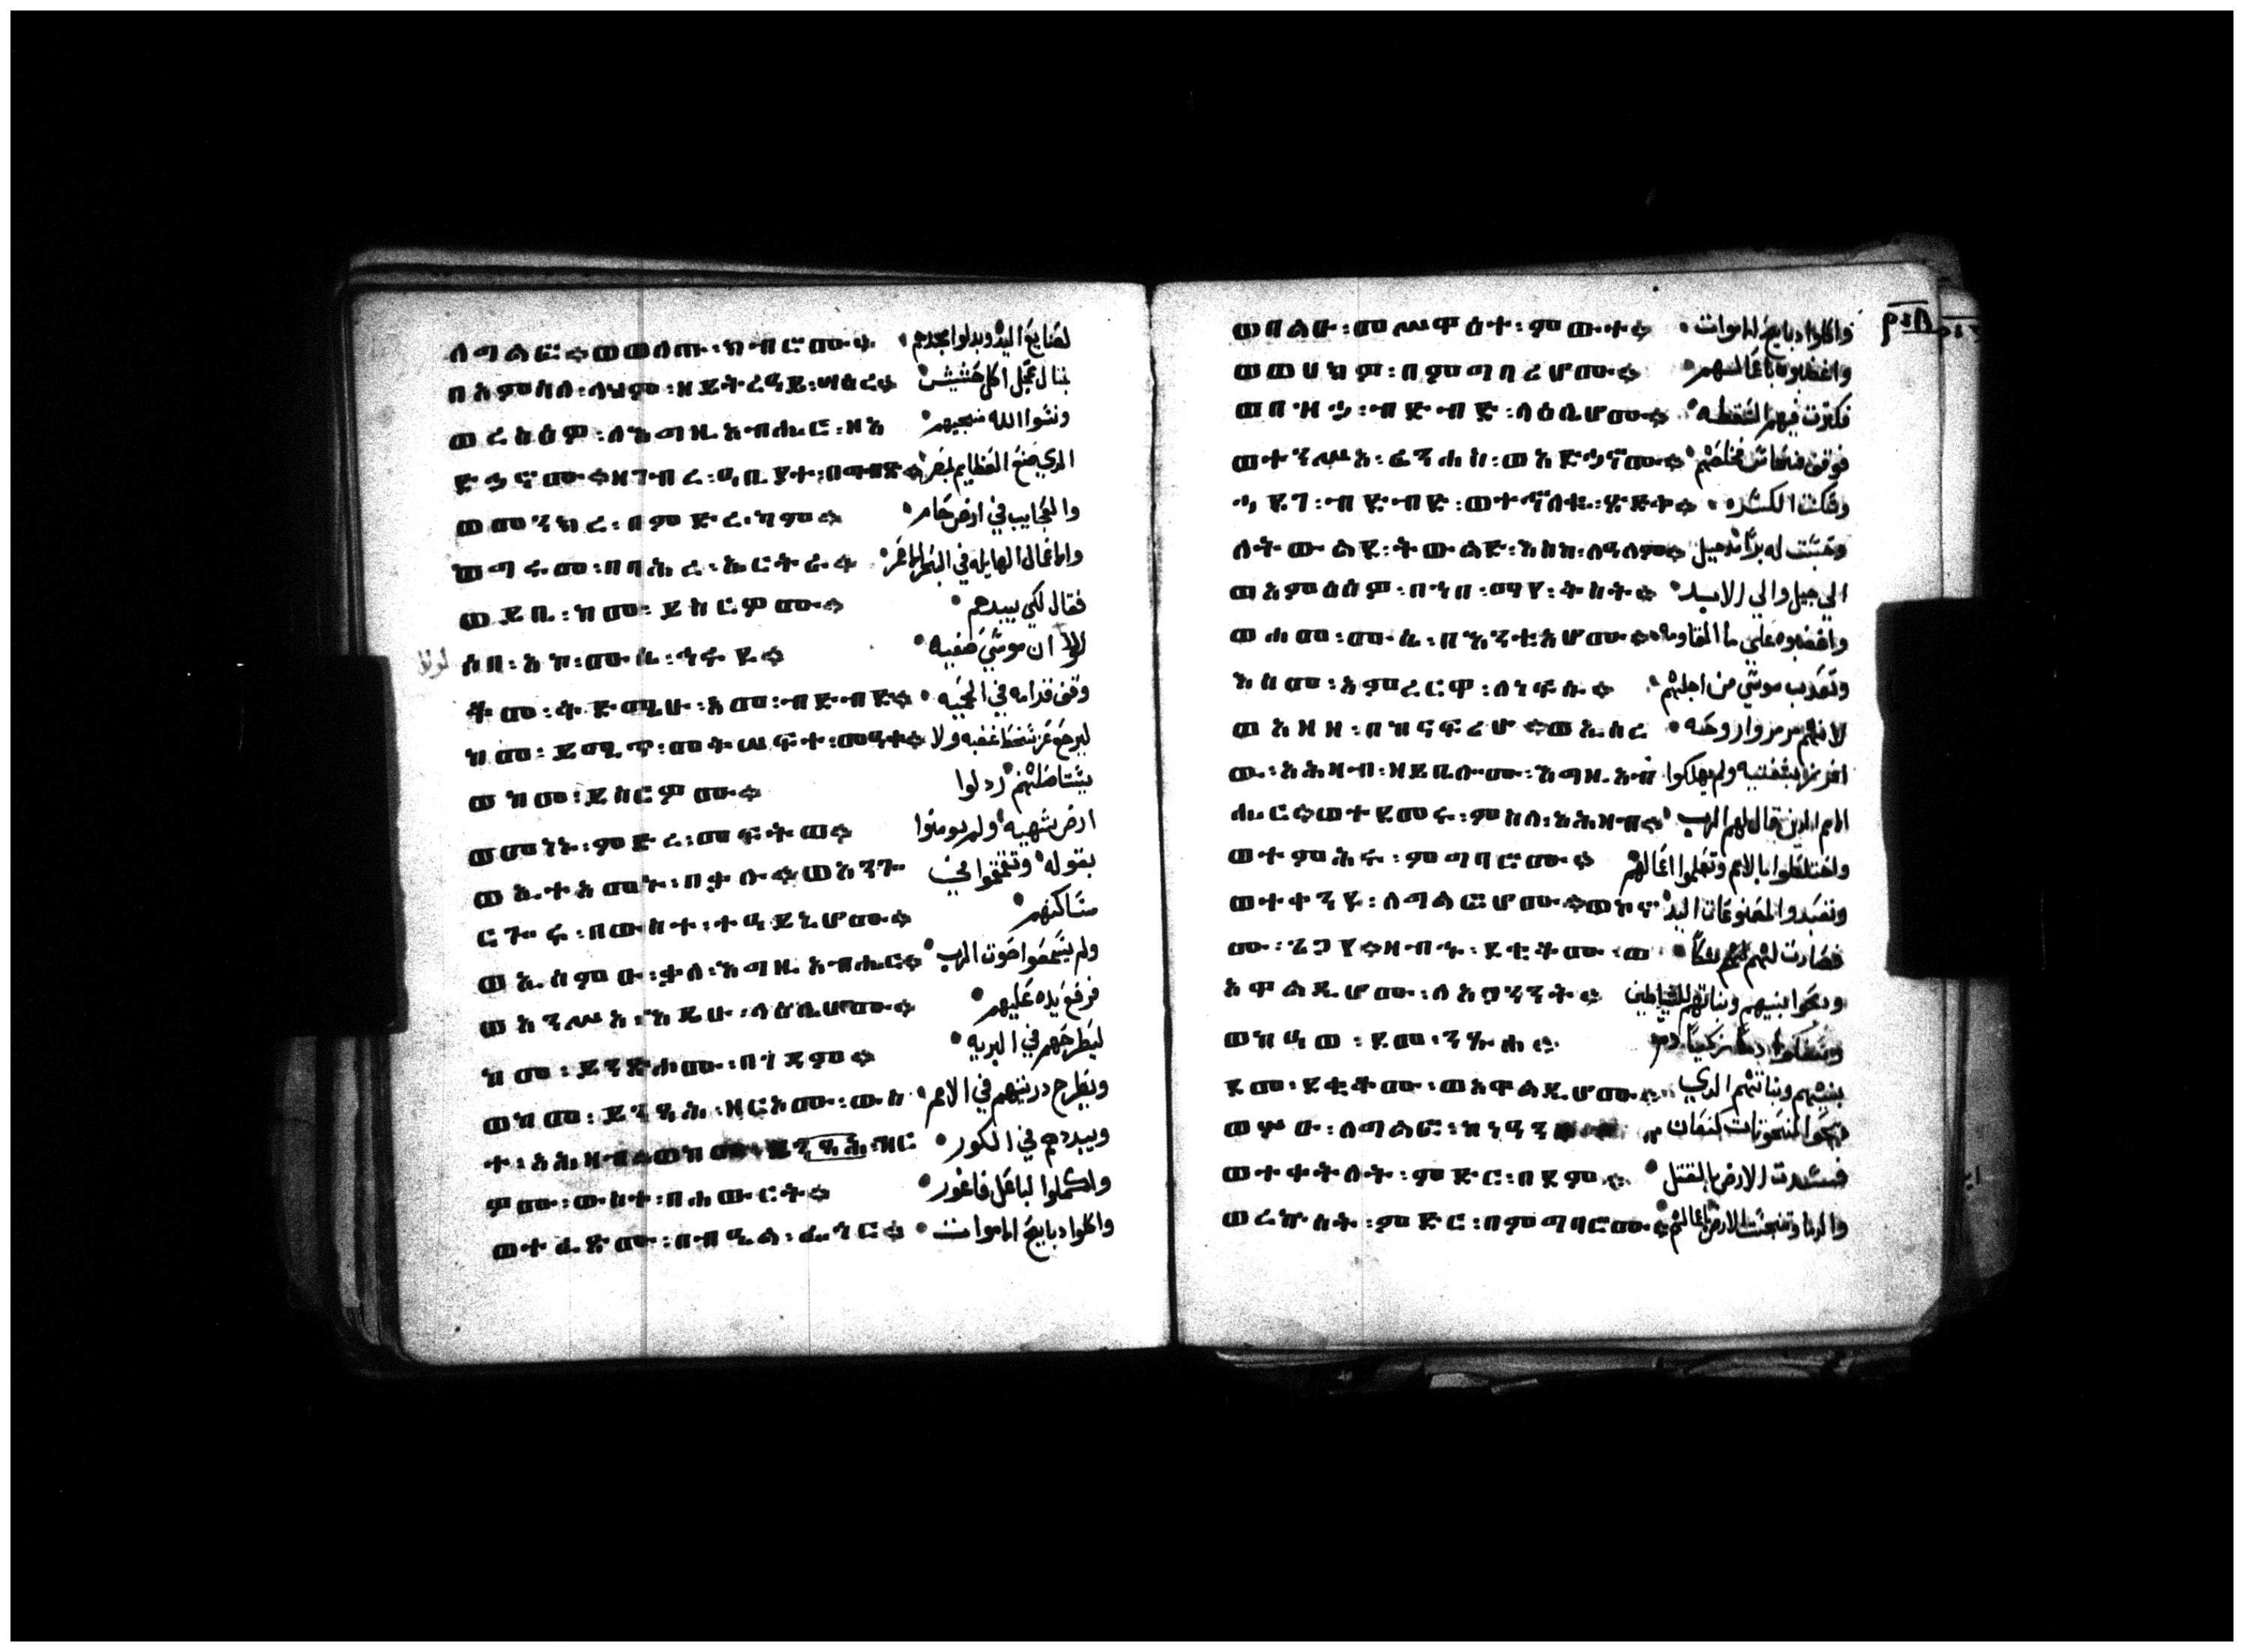 ለግልፎ፨ወወለጡ፡ክብሮሙ፨ لصنايع اليد وبدلوا مجدهم
በአምሳለ፡ላህም፡ዘይትረዓይ፡ሣዕረ፨ بمثال عجل اكل حشيش
ወረስዕዎ፡ለእግዚአብሔር፡ዘአ ونسوا الله منجيهم
ድኃኖሙ፨ዘገብረ፡ዐቢያተ፡በግብጽ፨ الدي صنع العظايم بمصر
ወመንክረ፡በምድረ፡ካም፨ والعجايب في ارض حام
ወግሩመ፡በባሕረ፡ኤርትራ፨ والاعمال الهايله في البحر الاحمر
ወይቤ፡ከመ፡ይሠርዎሙ፨ فقال لكي يبيدهم
لولا ሶበ፡አኮ፡ሙሴ፡ኅሩይ፨ لولا ان موسي صفيه
ቆመ፡ቅድሜሁ፡አመ፡ብድብድ፨ وقف قدامه في
ከመ፡ይሚጥ፡መቅሠፍተ፡መዓቱ፨ ليرجع عن سخط غضبه ولا
ወከመ፡ይሠርዎሙ፨ يستاصلهم ردلوا
ወመነኑ፡ምድረ፡መፍትወ፨ ارض شهيه ولم يومنوا
ወኢተአመኑ፡በቃሉ፨ወአንጐ بقوله وتقمقموا في
ርጐሩ፡በውስተ፡ተዓይኒሆሙ፨ مساكنهم
ወኢሰምዑ፡ቃለ፡እግዚአብሔር፨ ولم يسمعوا صوت الرب
ወአንሥአ፡እዴሁ፡ላዕሌሆሙ፨ فرفع يده عليهم
ከመ፡ይንድኦሙ፡በገዳም፨ ليطرحهم في البريه
ወከመ፡ይንዛሕ፡ዘርኦሙ፡ውስ ويطرح دريتهم في الامم
ተ፡አሕዛብ፨ወከመ፡ይንዛሕ፡ዝር ويبددهم في الكور
ዎሙ፡ውስተ፡በሓውርት፨ واكملوا لباعل فاغور
ወተፈጸሙ፡በብዔል፡ፌጎር፨ واكلوا دبايح الاموات
ወበልዑ፡መሥዋዕተ፡ምውት፨ واكلوا دبايح الاموات
ወወሀክዎ፡በምግባሪሆሙ፨ واغظاوه باعمالهم
ወበዝኃ፡ብድብድ፡ላዕሌሆሙ፨ فكترت فيهم السقطه
ወተንሥአ፡ፊንሐስ፡ወአድኃኖሙ፨ فوقف فنحاس فخلصهم
ኃደገ፡ብድብድ፡ወተኈለቈ፡ጽድቀ፨ وسكنت الكسره
ለትውልደ፡ትውልድ፡እስከ፡ለዓለም፨ وحسبت له برا من جيل
ወአምዕዕዎ፡በኀበ፡ማየ፡ቅስት፨ الي جيل والي الابد
ወሐመ፡ሙሴ፡በእንቲአሆሙ፨ واغضبوه علي ما المقاومه
እስመ፡አምረርዋ፡ለነፍሱ፨ وتعدب موسي من اجلهم
ወአዘዘ፡በከናፍሪሁ፨ወኢሠረ لانهم مرمروا روحه
ዉ፡አሕዛብ፡ዘይቤሎሙ፡እግዚአብ افرزها بشفتيه ولم يهلكوا
ሔር፨ወተደመሩ፡ምስለ፡አሕዛብ፨ الامم الدين قال لهم الرب
ወተምህሩ፡ምግባሮሙ፨ واختلطوا بالامم وتعلموا اعمالهم
ወተቀንዩ፡ለግልፎሆሙ፨ወኮኖ وتعبدوا لمصنوعات اليد
ሙ፡ጌጋየ፨ዘብሑ፡ደቂቆሙ፡ወ فصارت لهم
አዋልዲሆሙ፡ለአጋንንት፨ ودبحوا بنيهم وبناتهم للشياطين
ወከዓው፡ደመ፡ንጹሐ፨ وسفكوا دما زكيا دم
ደመ፡ደቂቆሙ፡ወአዋልዲሆሙ፨ بنيهم وبناتهم الدي
ወሦዑ፡ለግልፎ፡ከነዓን دبحوا لمنحوتات كنعان
ወተቀትለት፡ምድር፡በደም፨ الارض بالقتل
ወረኵሰት፡ምድር፡በምግባሮሙ፨ والدما وتنجست الارض باعمالهم